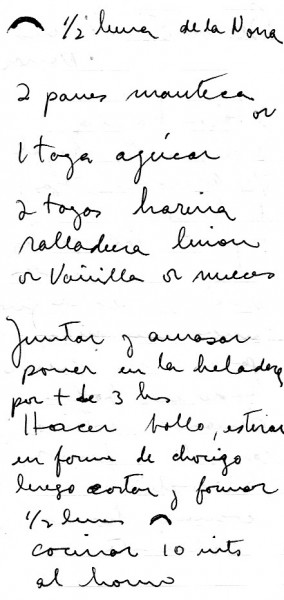 1/2 luna de la Nona
2 panes manteca
or
1 taza azúcar
2 tazas harina
ralladura limon
or Vainilla or nueces
Juntar y amasar
poner en la heladera
por + de 3 hs
Hacer bollo, estirar
en forma de chorizo
luego cortar y formar
1/2 lunas
cocinar 10 mits
al horno